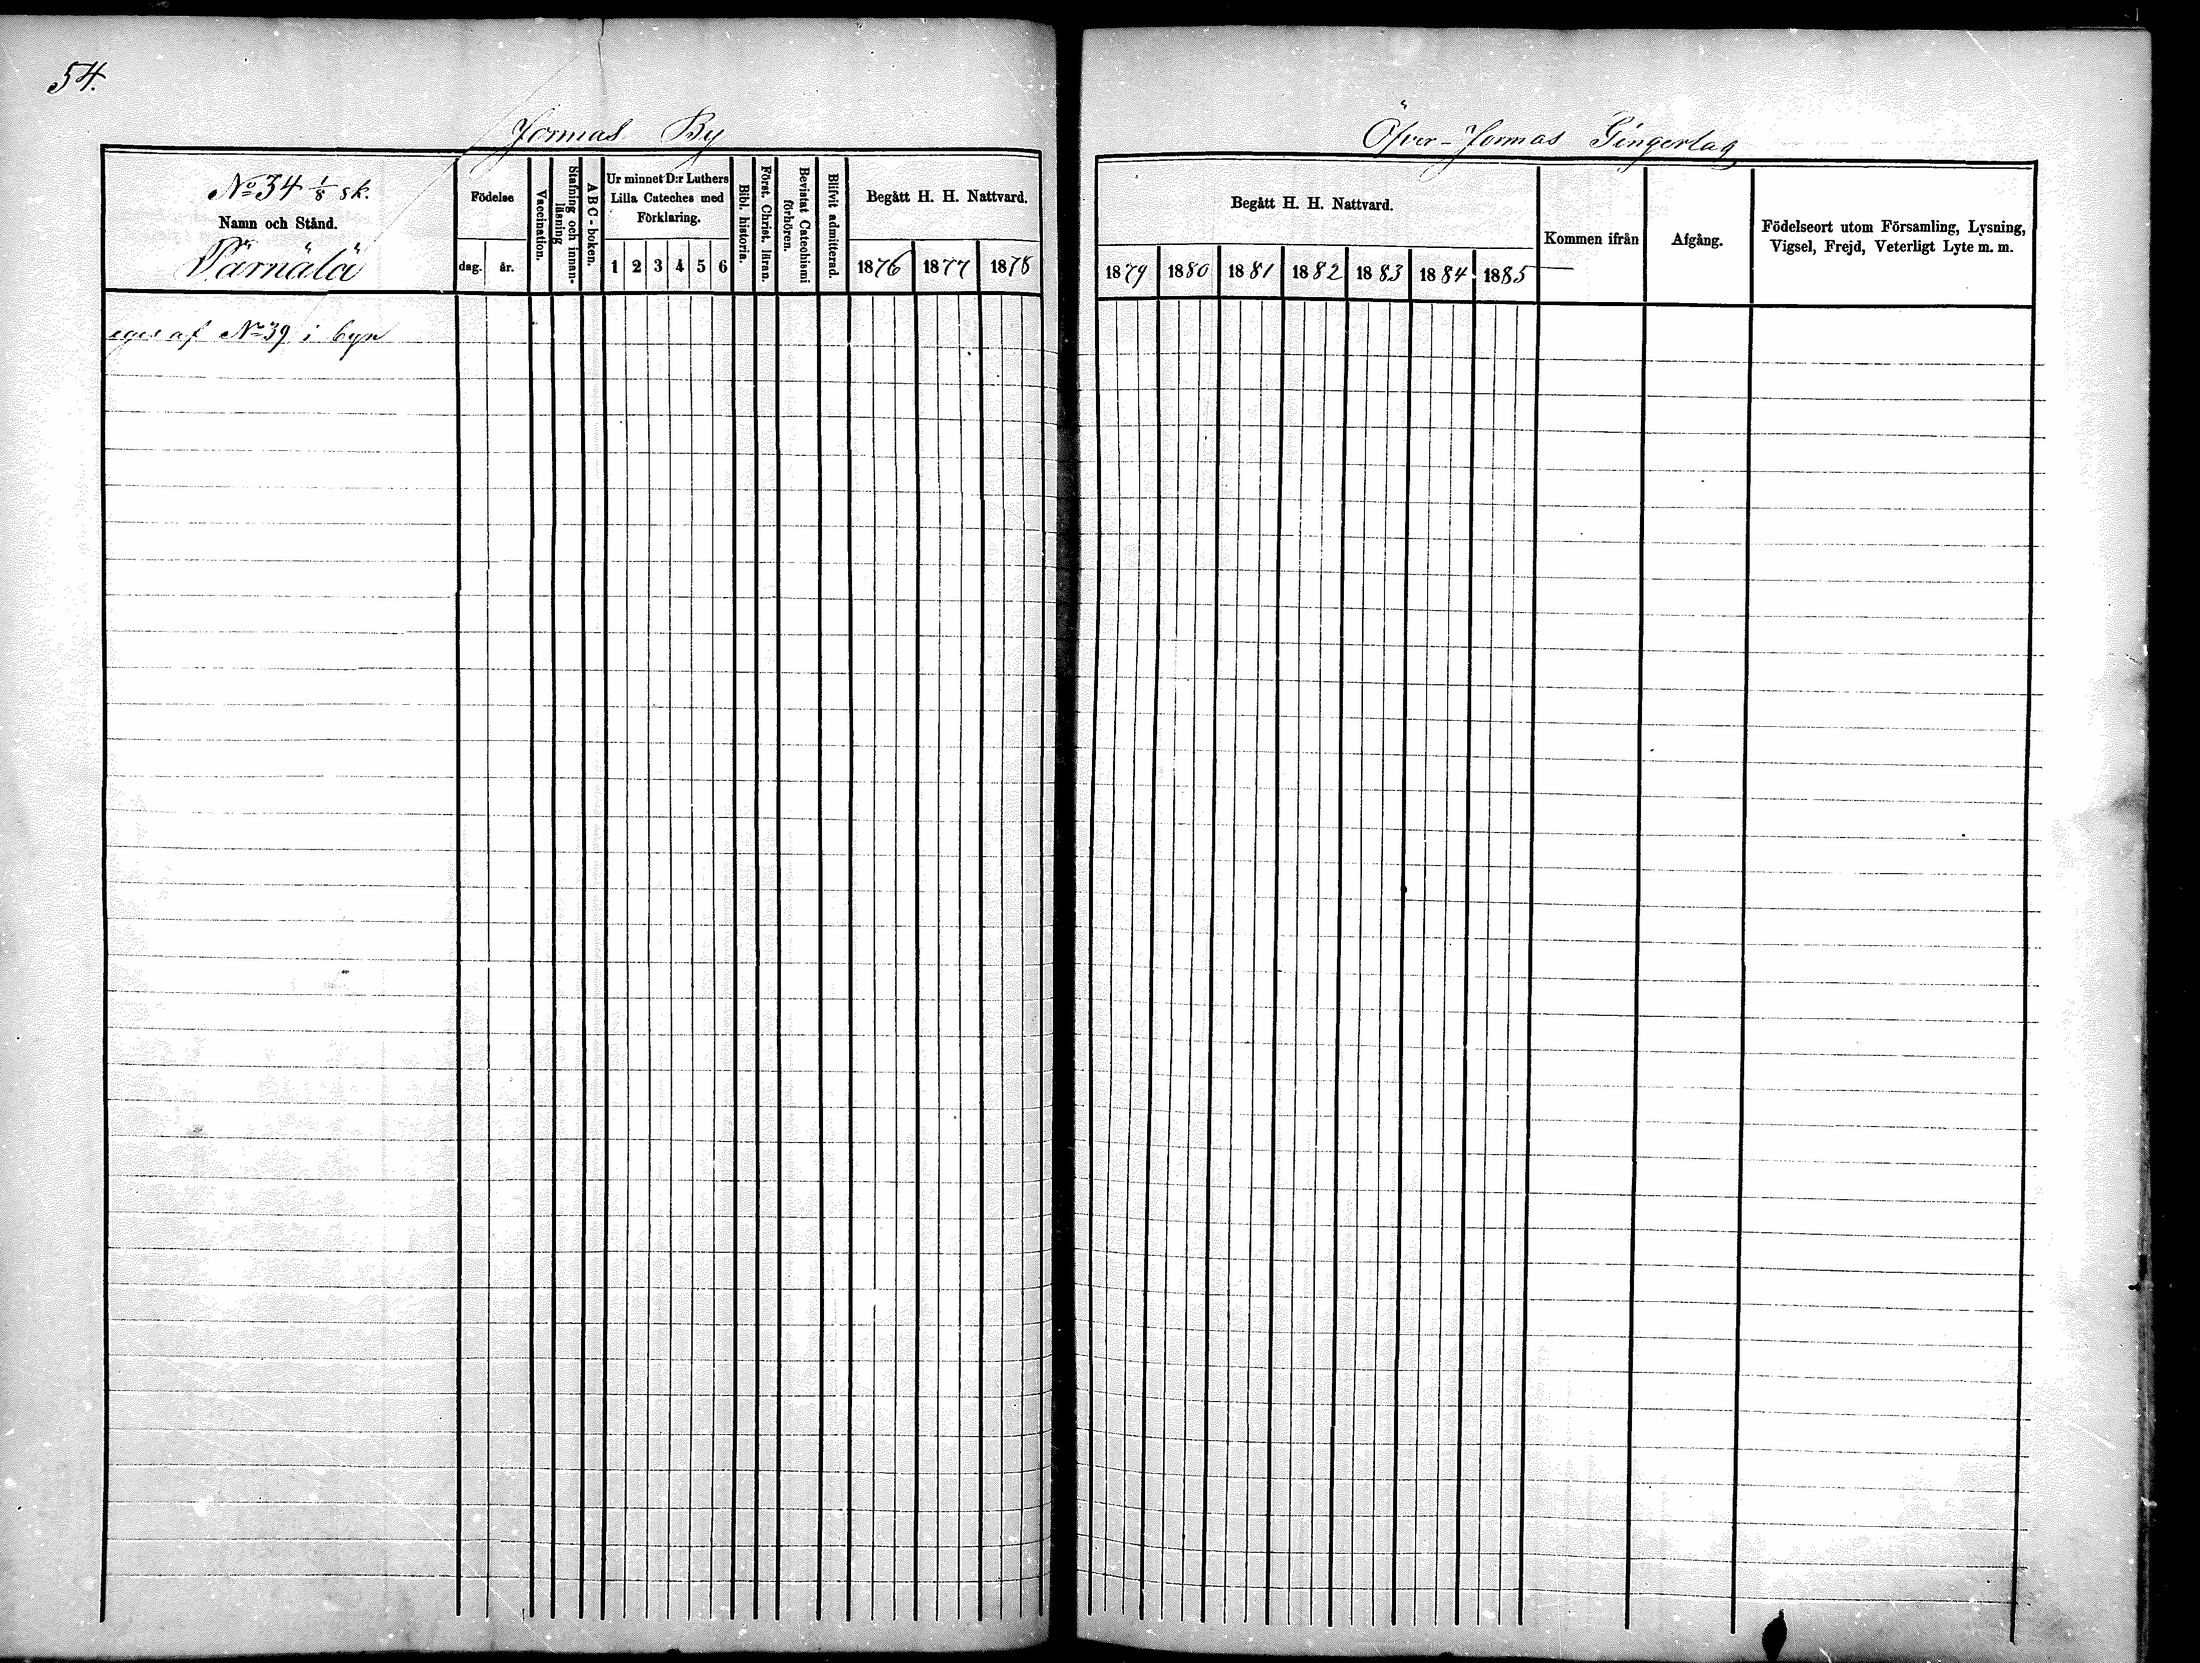 54.
Jormas By
No 34 1/8 sk.
Namn och Stånd.
Pärnälä
Födelse
dag. år.
Vaccination.
Stafning och innan-
läsning
ABC-boken.
Ur minnet D:r Luthers
Lilla Cateches med
Förklaring.
1 2 3 4 5 6
Bibl. historia.
Först. Christ. läran.
Bevistat Catechismi
förhören.
Blifvit admitterad.
Begått H. H. Nattvard.
1876 1877 1878
eges af No 39 i byn
Öfver-Jormas Gingerlag
Begått H. H. Nattvard.
1879 1880 1881 1882 1883 1884 1885
Kommen ifrån
Afgång.
Födelseort utom Församling, Lysning,
Vigsel, Frejd, Veterligt Lyte m. m.